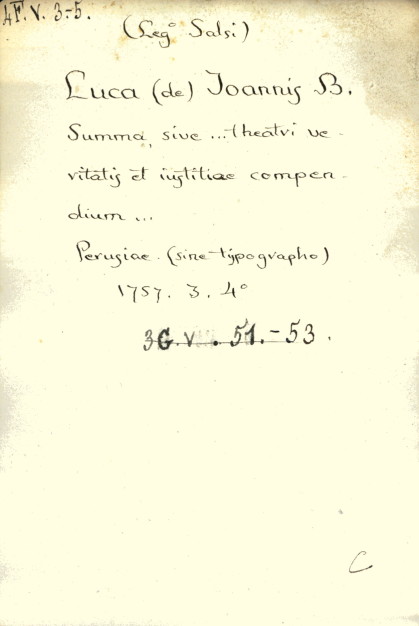 4F. V. 3-5.
(Leg° Salsi)
Luca (de) Joannis B.
Summa, sive ... theatri ve-
ritatis et iustitiae compen-
dium ...
Perusiae. (sine typographo)
1757. 3. 4°
3G. V . 51.-53.
C